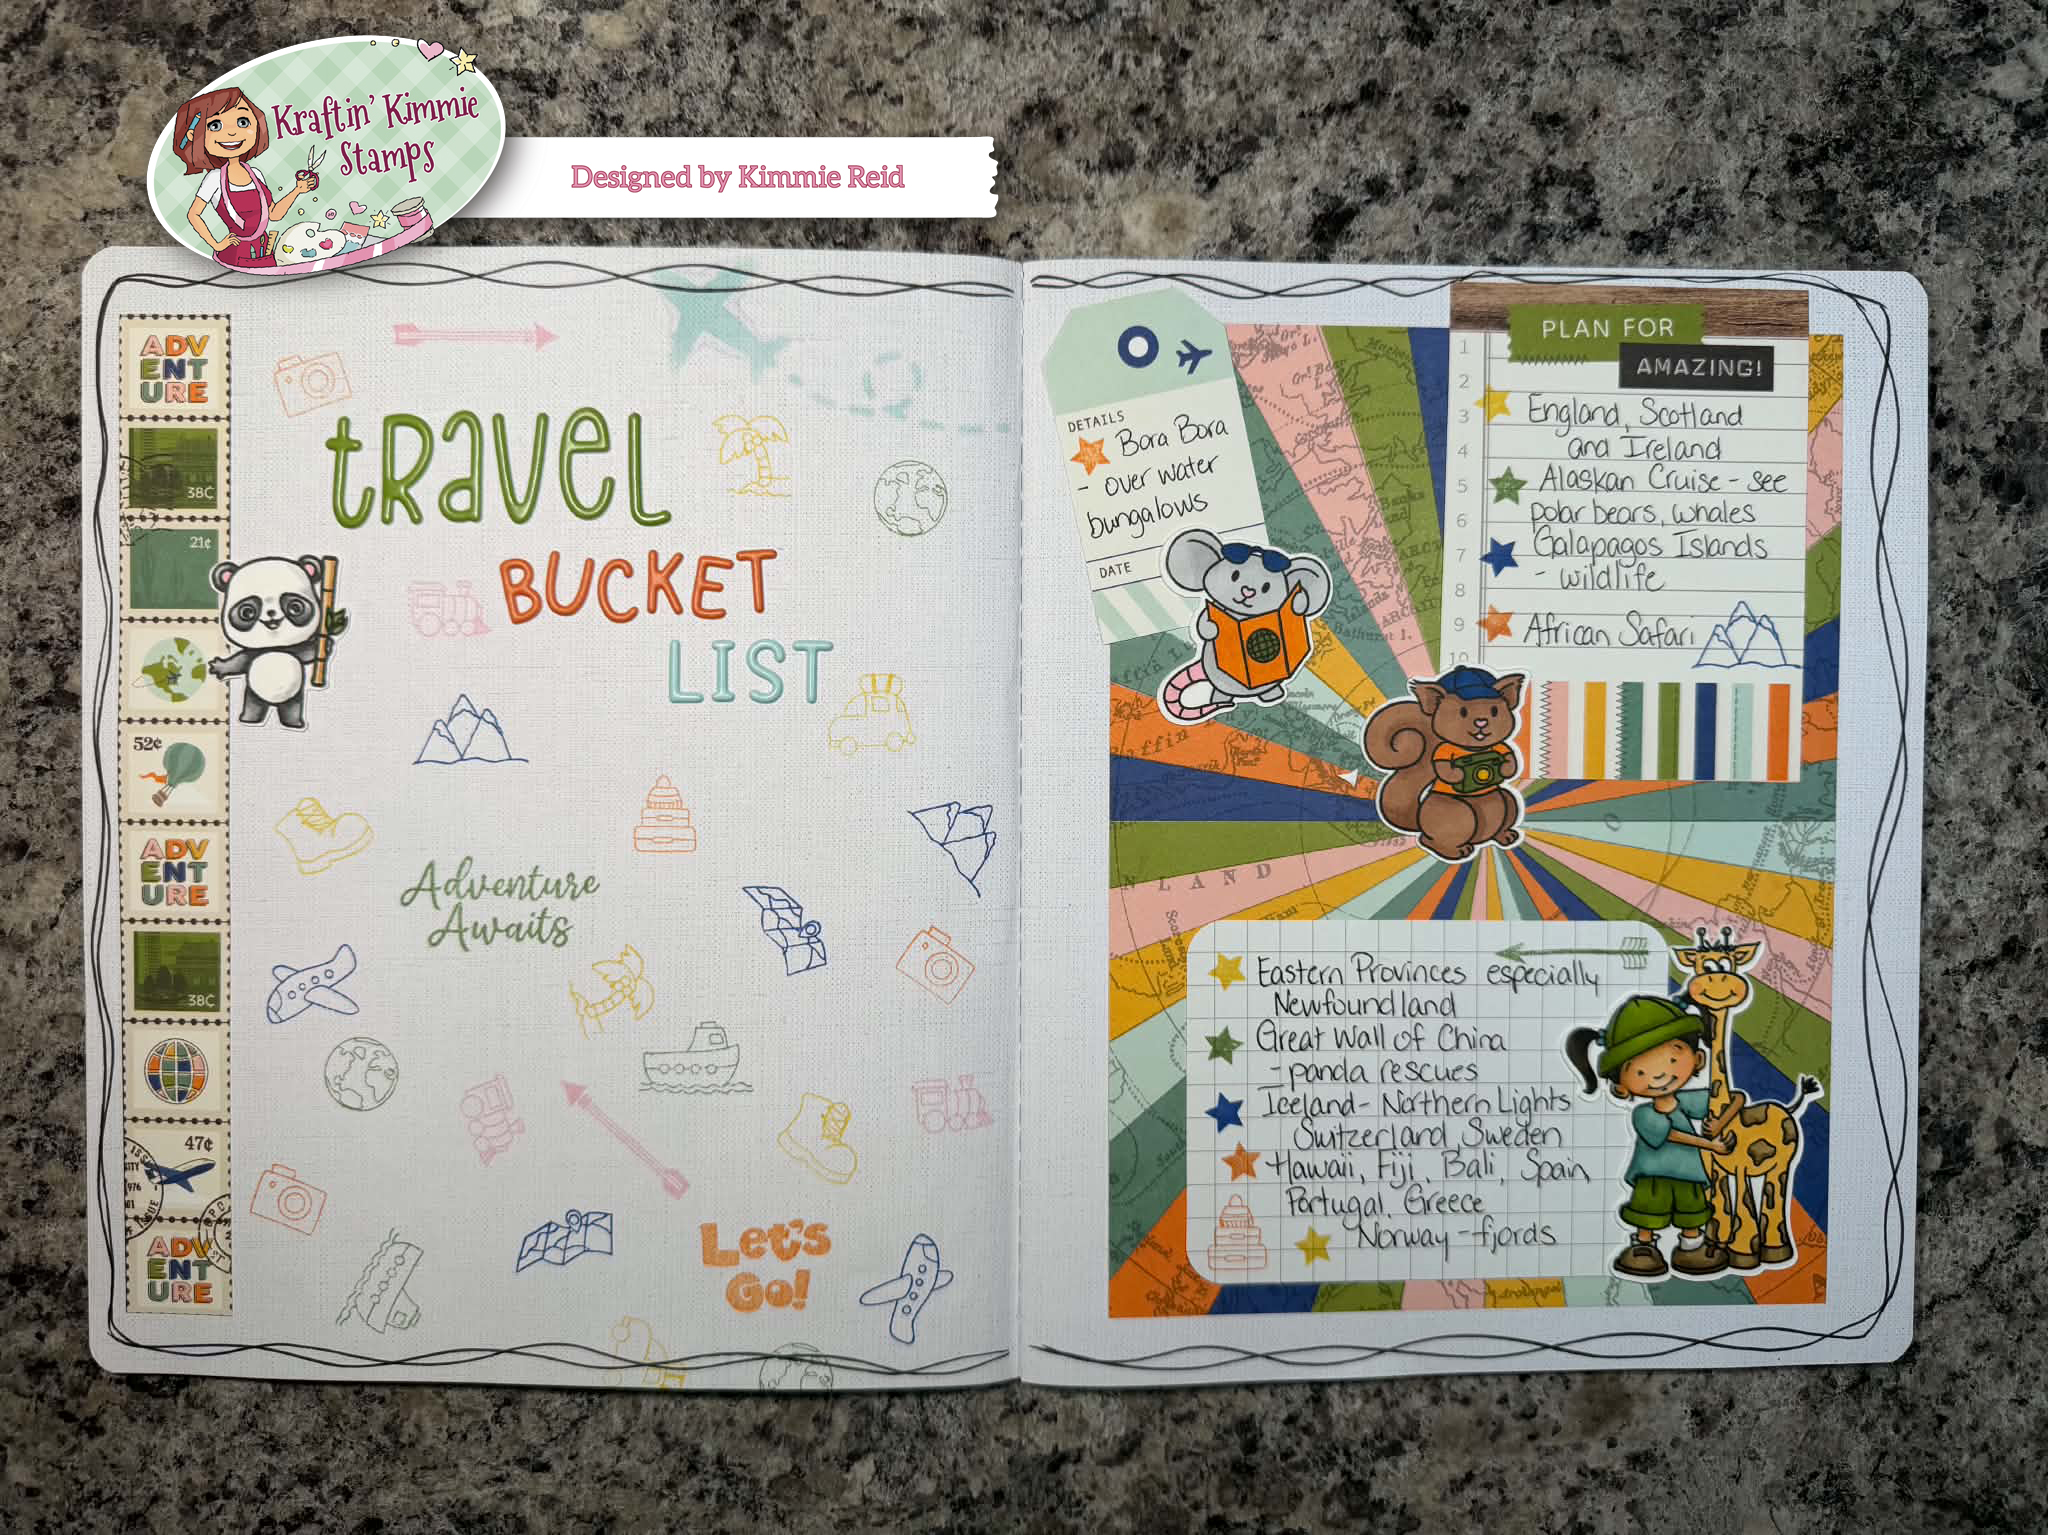 Kraftin' Kimmie
Stamps
Designed by Kimmie Reid
ADV
ENT
URE
38¢
21¢
52¢
ADV
ENT
URE
38¢
47¢
ADV
ENT
URE
TRAVEL
BUCKET
LIST
Adventure
Awaits
Let's
Go!
DETAILS
Bora Bora
- over water
bungalows
DATE
PLAN FOR
AMAZING!
1
2
3 England, Scotland
4 and Ireland
5 Alaskan Cruise - see
6 polar bears, whales
7 Galapagos Islands
8 - wildlife
9 African Safari
10
NLAND
Eastern Provinces especially
Newfoundland
Great Wall of China
- panda rescues
Iceland - Northern Lights
Switzerland, Sweden
Hawaii, Fiji, Bali, Spain,
Portugal, Greece
Norway - fjords